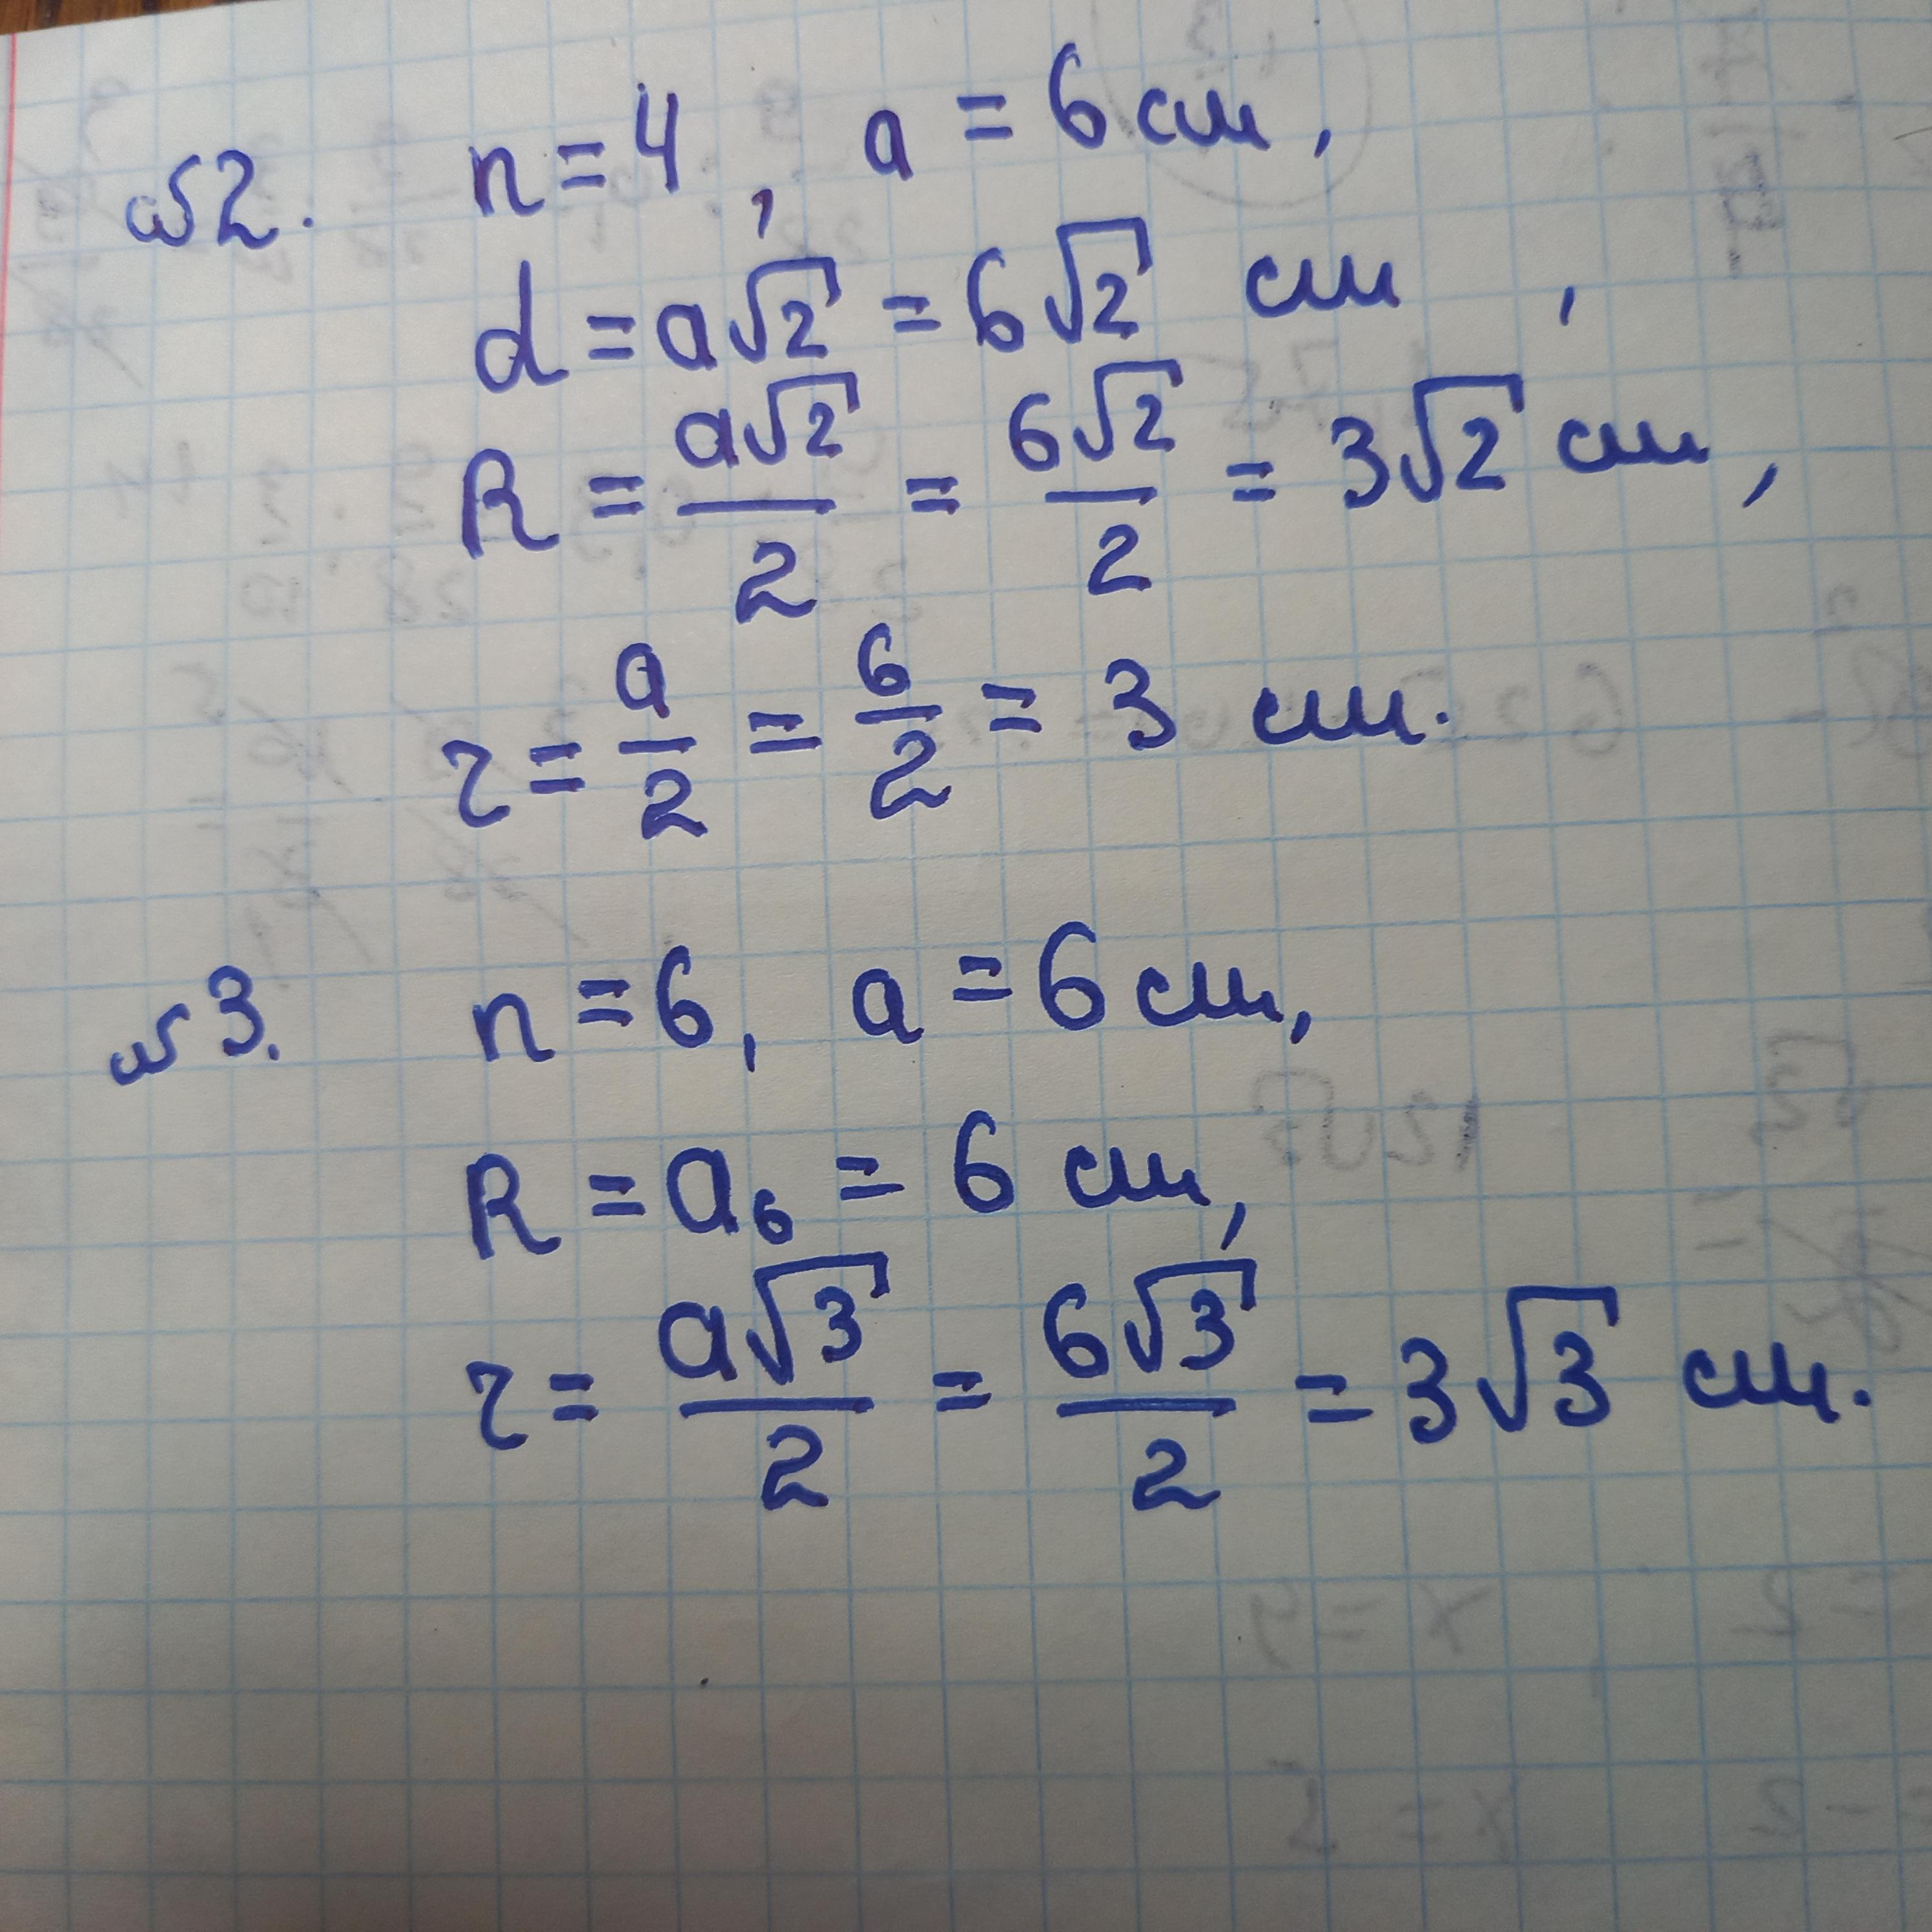 №2. n = 4, a = 6 см,
d = a√2 = 6√2 см,
R = a√2/2 = 6√2/2 = 3√2 см,
r = a/2 = 6/2 = 3 см.
№3. n = 6, a = 6 см,
R = a₆ = 6 см,
r = a√3/2 = 6√3/2 = 3√3 см.